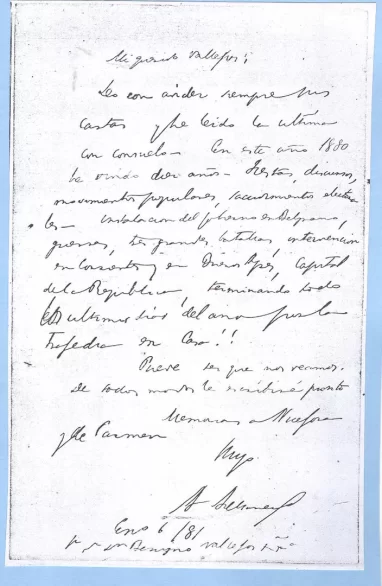 Mi querido Vallejos;
Leo con avidez siempre sus
cartas y he leido la ultima
con consuelo - En este año 1880
he vivido diez años - Fiestas, discursos,
movimientos populares, sacudimientos electora-
les - instalacion del gobierno en Belgrano,
guerras, tres grandes batallas, intervencion
en Corrientes y en Buenos Ayres, Capital
de la Republica, terminando todo
ultimos dias del año por la
tragedia en Casa!!
Puede ser que nos veamos.
De todos modos le escribiré pronto
Memorias a
y de Carmen
Suyo
Eno 6/81
Benigno Vallejos